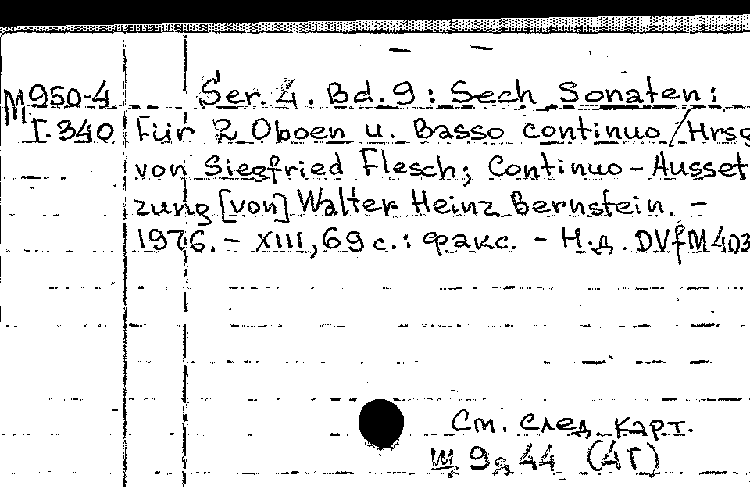 М950-4 Ser. 4. Bd. 9: Sech Sonaten:
Г-340 Für 2 Oboen u. Basso continuo / Hrsg
von Siegfried Flesch; Continuo-Ausset
zung [von] Walter Heinz Bernstein. –
1976. – XIII, 69 с.: факс. – Н.д. DVfM 403
См. след. карт.
44 (4Г)